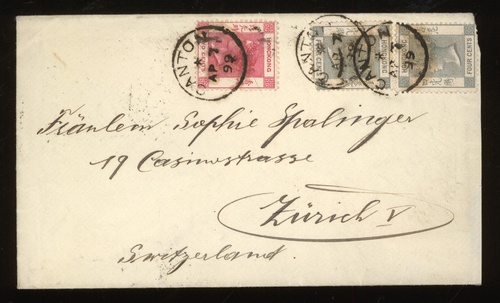 CANTON
AP 7
99
HONGKONG
CANTON
CANTON
AP 7
99
FOUR CENTS
Fräulein Sophie Spalinger
19 Casinostrasse
Zürich V
Switzerland.